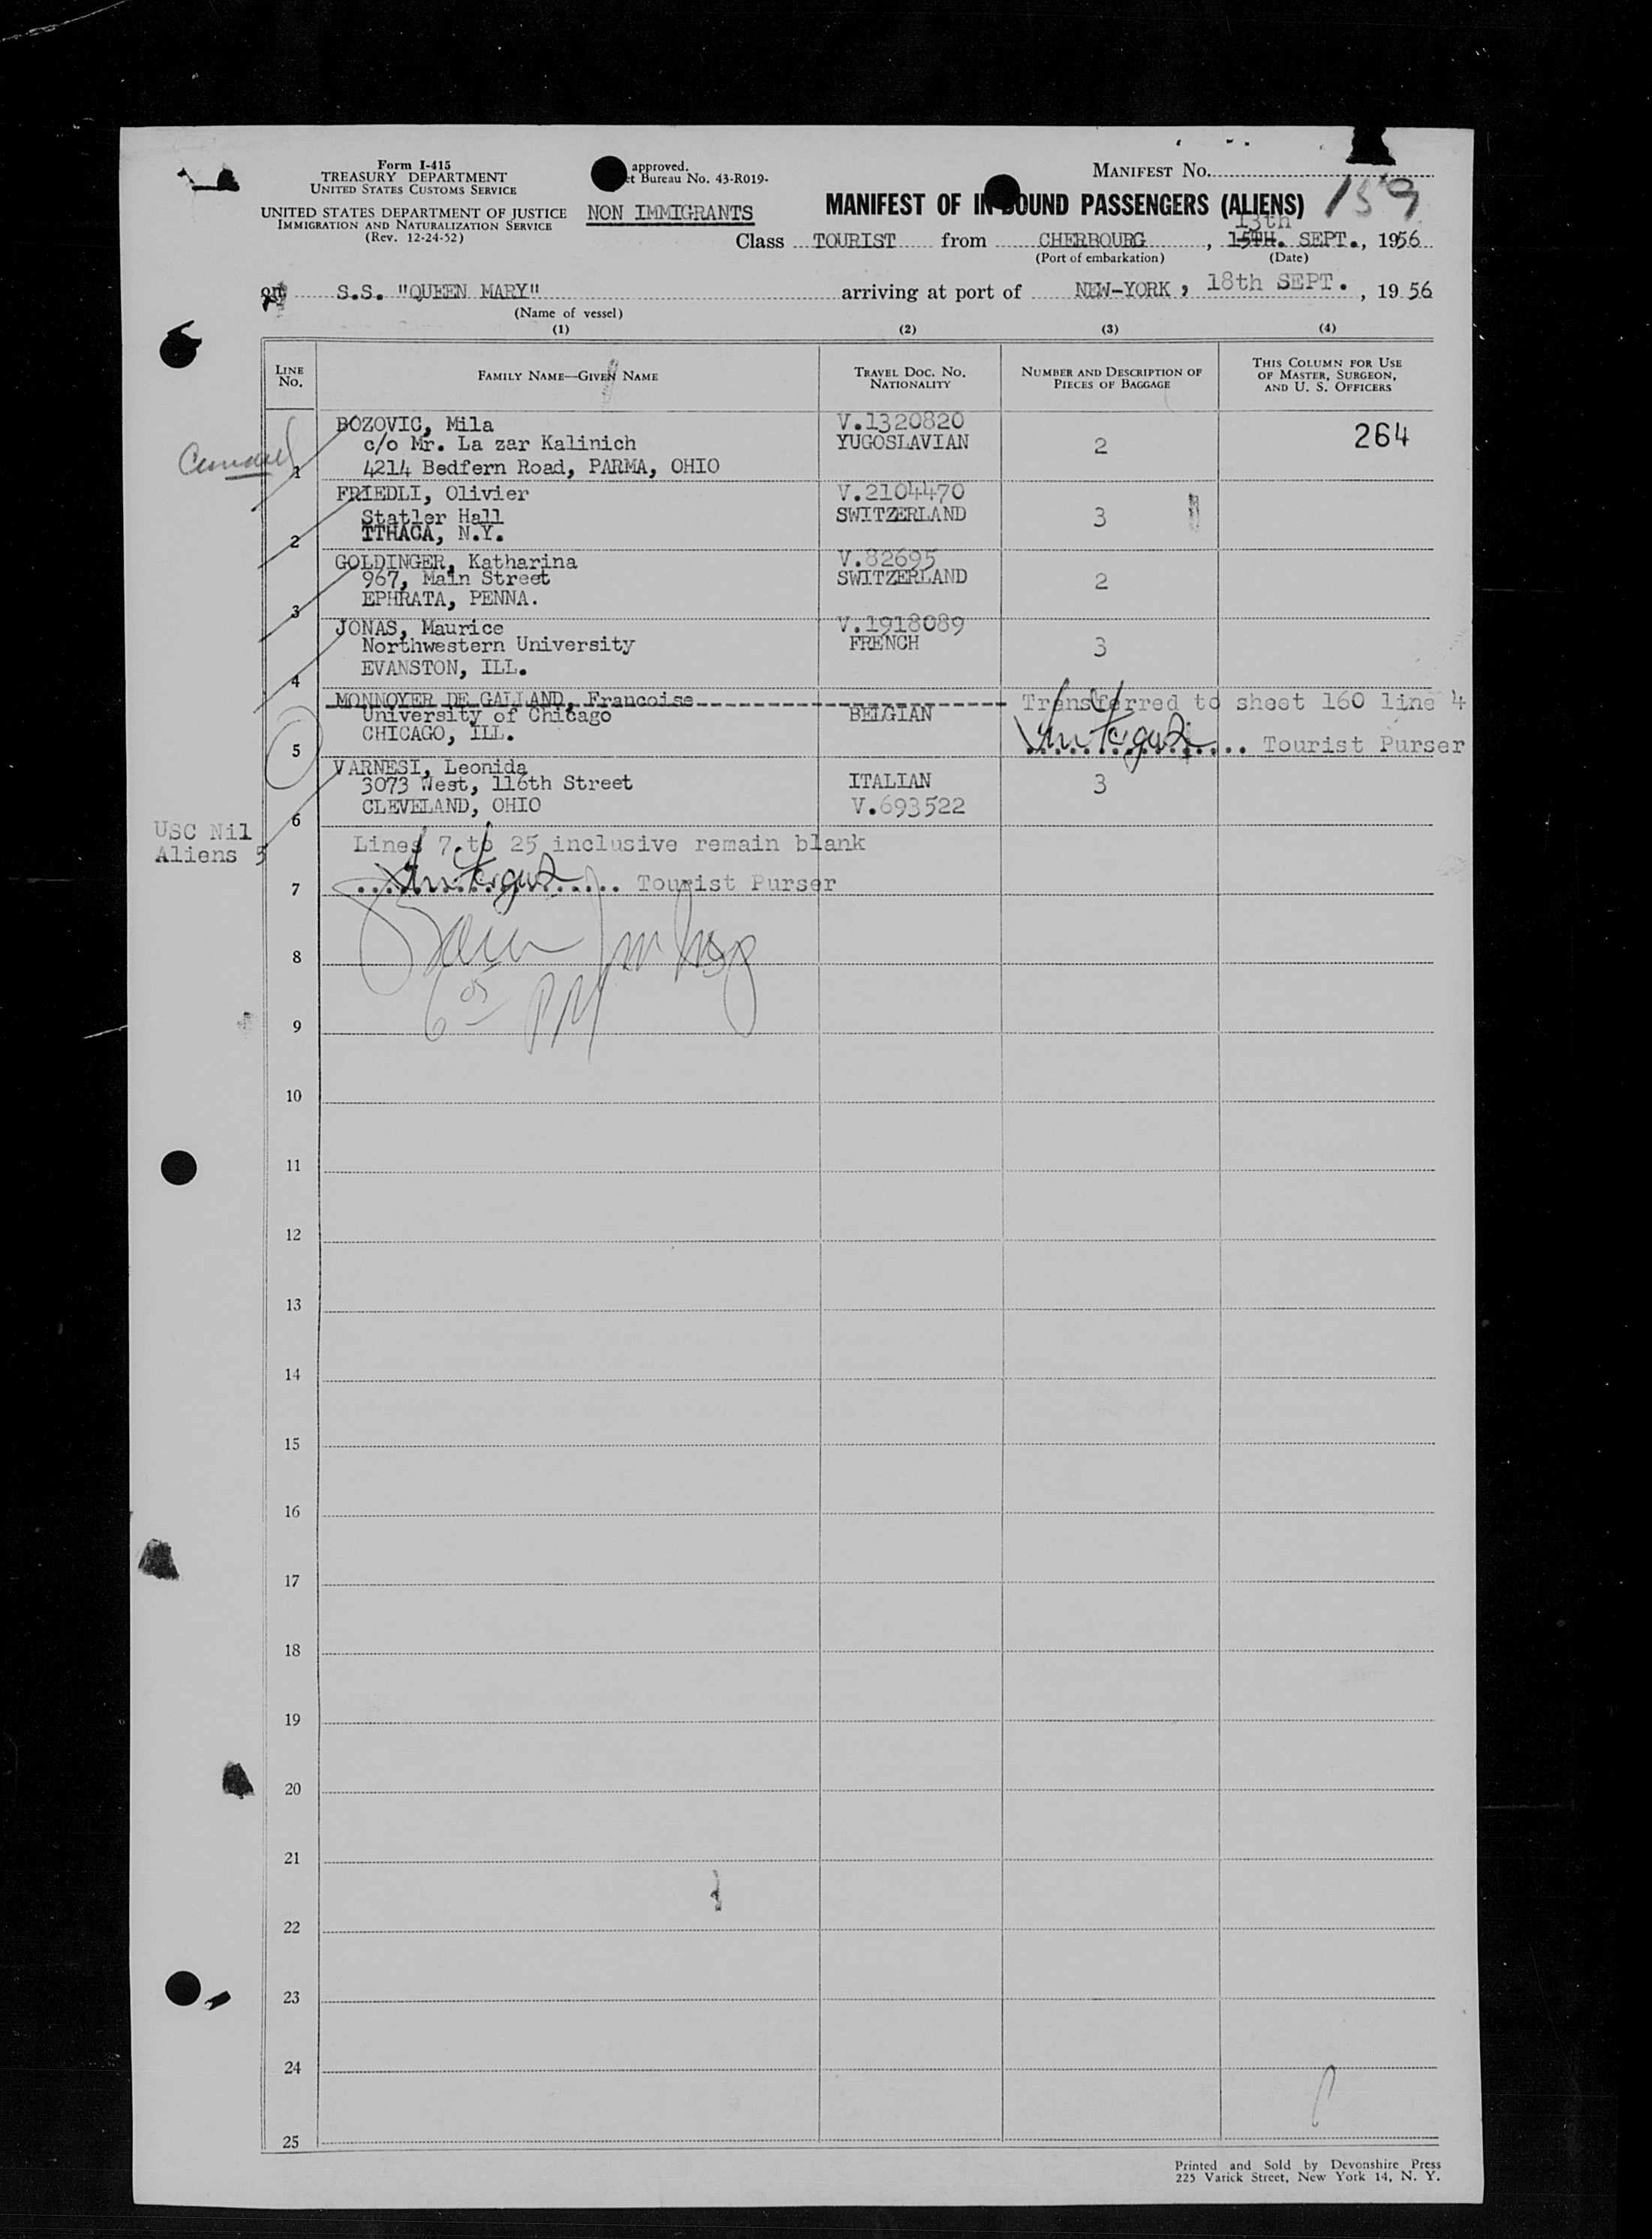 Form I-415
TREASURY DEPARTMENT
UNITED STATES CUSTOMS SERVICE
UNITED STATES DEPARTMENT OF JUSTICE
IMMIGRATION AND NATURALIZATION SERVICE
(Rev. 12-24-52)
approved.
Bureau No. 43-R019-
NON IMMIGRANTS
MANIFEST NO.
159
MANIFEST OF INBOUND PASSENGERS (ALIENS)
13th
Class TOURIST from CHERBOURG, 15TH. SEPT., 1956
(Port of embarkation) (Date)
on S.S. "QUEEN MARY" arriving at port of NEW-YORK, 18th SEPT., 1956
(Name of vessel)
(1) (2) (3) (4)
LINE NO.
FAMILY NAME—GIVEN NAME
TRAVEL DOC. NO. NATIONALITY
NUMBER AND DESCRIPTION OF PIECES OF BAGGAGE
THIS COLUMN FOR USE OF MASTER, SURGEON, AND U. S. OFFICERS
BOZOVIC, Mila V.1320820
c/o Mr. La zar Kalinich YUGOSLAVIAN 2 264
1 4214 Bedfern Road, PARMA, OHIO
FRIEDLI, Olivier V.2104470
Statler Hall SWITZERLAND 3
2 ITHACA, N.Y.
GOLDINGER, Katharina V.82695
967, Main Street SWITZERLAND 2
3 EPHRATA, PENNA.
JONAS, Maurice V.1918089
Northwestern University FRENCH 3
4 EVANSTON, ILL.
MONNOYER DE GALLAND, Francoise Transferred to sheet 160 line 4
University of Chicago BELGIAN
5 CHICAGO, ILL. Tourist Purser
VARNESI, Leonida
3073 West, 116th Street ITALIAN 3
6 CLEVELAND, OHIO V.693522
USC Nil
Aliens 5
Lines 7 to 25 inclusive remain blank
7 Tourist Purser
8
6 05 PM
9
10
11
12
13
14
15
16
17
18
19
20
21
22
23
24
25
Printed and Sold by Devonshire Press
225 Varick Street, New York 14, N. Y.